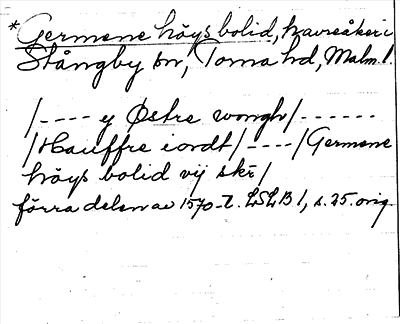 *Germene höys bolid, havreåker i
Stångby sn, Torna hd, Malm. l.
/---- y Østre wongh/------
/Hauffre iordt/----/Germene
höys bolid vij skr/
förra delen av 1570-t. LSLB 1, s. 25. orig.